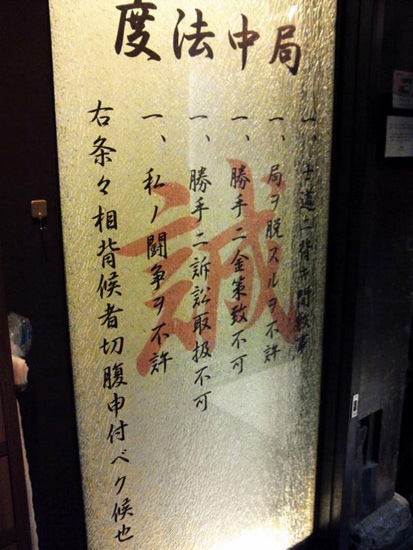 局中法度
一、士道ニ背キ間敷事
一、局ヲ脱スルヲ不許
一、勝手ニ金策致不可
一、勝手ニ訴訟取扱不可
一、私ノ闘争ヲ不許
右条々相背候者切腹申付ベク候也
誠